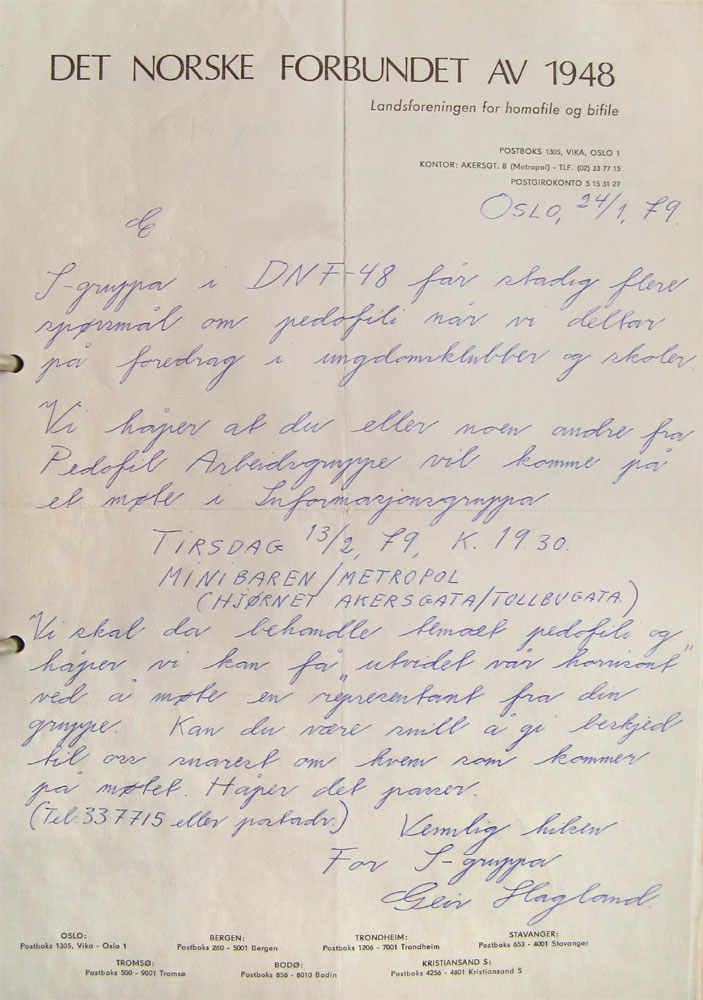 DET NORSKE FORBUNDET AV 1948
Landsforeningen for homofile og bifile
POSTBOKS 1305, VIKA, OSLO 1
KONTOR: AKERSGT. 8 (Metropol) - TLF. (02) 33 77 15
POSTGIROKONTO 5 15 31 27
OSLO, 24/1, 79.
I-gruppa i DNF-48 får stadig flere
spørsmål om pedofili når vi deltar
på foredrag i ungdomsklubber og skoler.
Vi håper at du eller noen andre fra
Pedofil Arbeidsgruppe vil komme på
et møte i Informasjonsgruppa
TIRSDAG 13/2, 79, K. 19.30.
MINIBAREN/METROPOL
(HJØRNET AKERSGATA/TOLLBUGATA.)
Vi skal da behandle temaet pedofili og
håper vi kan få "utvidet vår horrisont"
ved å møte en representant fra din
gruppe. Kan du være snill å gi beskjed
til oss snarest om hvem som kommer
på møtet. Håper det passer.
(Tel. 337715 eller postadr.) Vennlig hilsen
For I-gruppa
Geir Hagland.
OSLO:
Postboks 1305, Vika - Oslo 1
BERGEN:
Postboks 260 - 5001 Bergen
TRONDHEIM:
Postboks 1206 - 7001 Trondheim
STAVANGER:
Postboks 653 - 4001 Stavanger
TROMSØ:
Postboks 500 - 9001 Tromsø
BODØ:
Postboks 856 - 8010 Bodin
KRISTIANSAND S:
Postboks 4256 - 4601 Kristiansand S